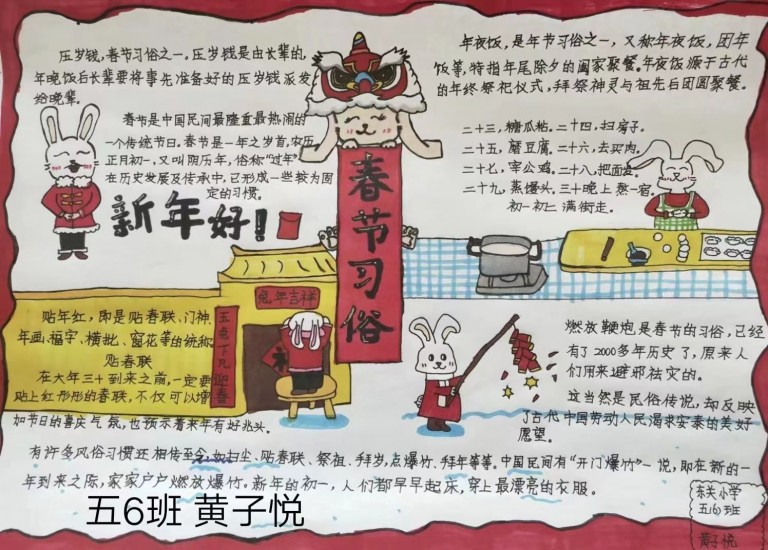 压岁钱,春节习俗之一。压岁钱是由长辈的,
年晚饭后长辈要将事先准备好的压岁钱派发
给晚辈。
春节是中国民间最隆重最热闹的
一个传统节日。春节是一年之岁首,农历
正月初一,又叫阴历年,俗称"过年"
在历史发展及传承中,已形成一些较为固
定的习惯。
新年好!
春节习俗
年夜饭,是年节习俗之一,又称年夜饭,团年
饭等,特指年尾除夕的阖家聚餐。年夜饭源于古代
的年终祭祀仪式,拜祭神灵与祖先后团圆聚餐。
二十三,糖瓜粘。二十四,扫房子。
二十五,磨豆腐。二十六,去买肉。
二十七,宰公鸡。二十八,把面发。
二十九,蒸馒头。三十晚上熬一宿。
初一初二满街走。
贴年红,即是贴春联、门神、
年画、福字、横批、窗花等的统称。
贴春联
在大年三十到来之前,一定要
贴上红彤彤的春联,不仅可以增
如节日的喜庆气氛,也预示着来年有好兆头。
兔年吉祥
五兔下凡
迎春
福
燃放鞭炮是春节的习俗,已经
有了2000多年历史了,原来人
们用来避邪祛灾的。
这当然是民俗传说,却反映
了古代中国劳动人民渴求安泰的美好
愿望。
有许多风俗习惯还相传至今,如扫尘、贴春联、祭祖、拜岁,点爆竹、拜年等等。中国民间有"开门爆竹"一说,即在新的一
年到来之际,家家户户燃放爆竹。新年的初一,人们都早早起床,穿上最漂亮的衣服。
五6班 黄子悦
东关小学
五(6)班
黄子悦